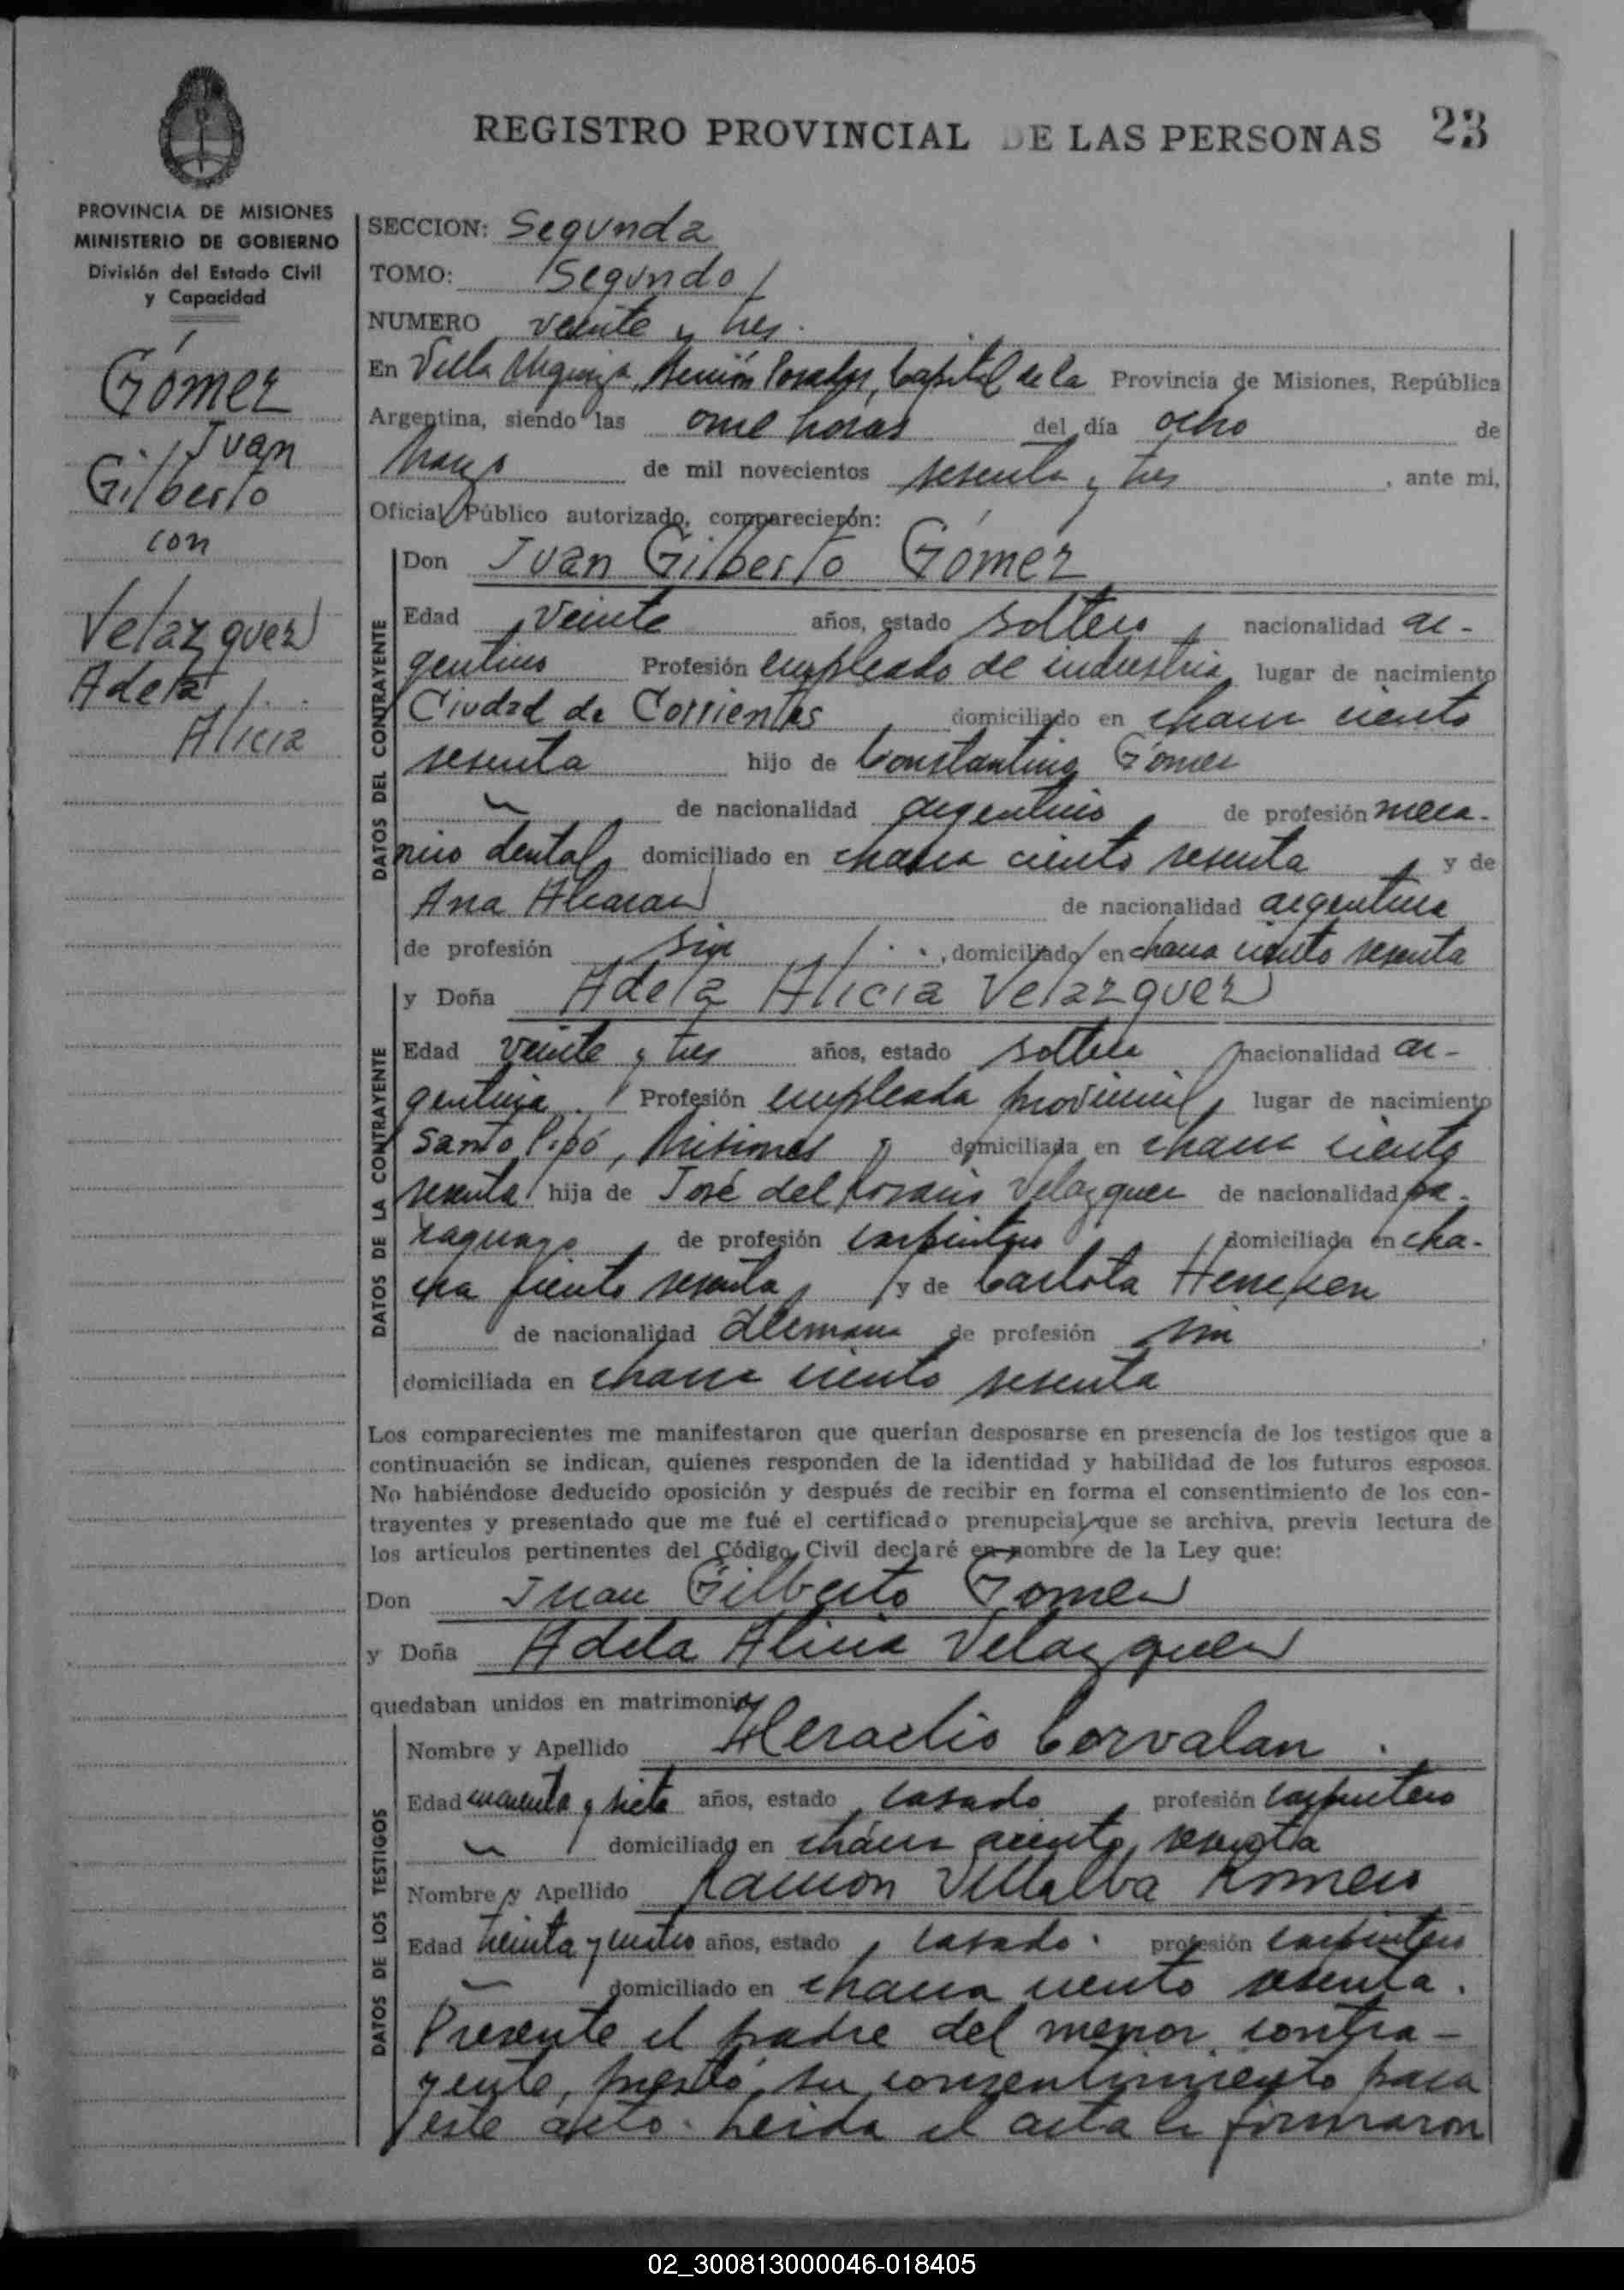 REGISTRO PROVINCIAL DE LAS PERSONAS 23
PROVINCIA DE MISIONES
MINISTERIO DE GOBIERNO
División del Estado Civil
y Capacidad
Gómez
Juan
Gilberto
con
Velazquez
Adela
Alicia
SECCION: Segunda
TOMO: Segundo
NUMERO veinte y tres.
En Villa Urquiza, Posadas, Capital de la Provincia de Misiones, República
Argentina, siendo las once horas del día ocho de
Marzo de mil novecientos sesenta y tres, ante mi,
Oficial Público autorizado, comparecieron:
DATOS DEL CONTRAYENTE
Don Juan Gilberto Gómez
Edad veinte años, estado soltero, nacionalidad ar-
gentino Profesión empleado de industria, lugar de nacimiento
Ciudad de Corrientes, domiciliado en chacra ciento
sesenta hijo de Constantino Gómez
de nacionalidad argentino, de profesión meca-
nico dental, domiciliado en chacra ciento sesenta, y de
Ana de nacionalidad argentina
de profesión sin, domiciliado en chacra ciento sesenta
DATOS DE LA CONTRAYENTE
y Doña Adela Alicia Velazquez
Edad veinte y tres años, estado soltera nacionalidad ar-
gentina. Profesión empleada provincial, lugar de nacimiento
Santo Pipó, Misiones, domiciliada en chacra ciento
sesenta hija de José del Rosario Velazquez de nacionalidad pa-
raguayo, de profesión carpintero, domiciliada en cha-
cra ciento sesenta, y de Carlota Heneken
de nacionalidad Alemana de profesión sin
domiciliada en chacra ciento sesenta
Los comparecientes me manifestaron que querían desposarse en presencia de los testigos que a
continuación se indican, quienes responden de la identidad y habilidad de los futuros esposos.
No habiéndose deducido oposición y después de recibir en forma el consentimiento de los con-
trayentes y presentado que me fué el certificado prenupcial que se archiva, previa lectura de
los artículos pertinentes del Código Civil declaré en nombre de la Ley que:
Don Juan Gilberto Gomez
y Doña Adela Alicia Velazquez
quedaban unidos en matrimonio
DATOS DE LOS TESTIGOS
Nombre y Apellido Heraclio Corvalan.
Edad cuarenta y siete años, estado casado, profesión carpintero
domiciliado en chacra ciento sesenta
Nombre y Apellido Ramon Villalba Romero
Edad treinta y cuatro años, estado, casado. profesión carpintero
domiciliado en chacra ciento sesenta.
Presente el padre del menor contra-
yente, prestó su consentimiento para
este acto. Leida el acta la firmaron
02_300813000046-018405